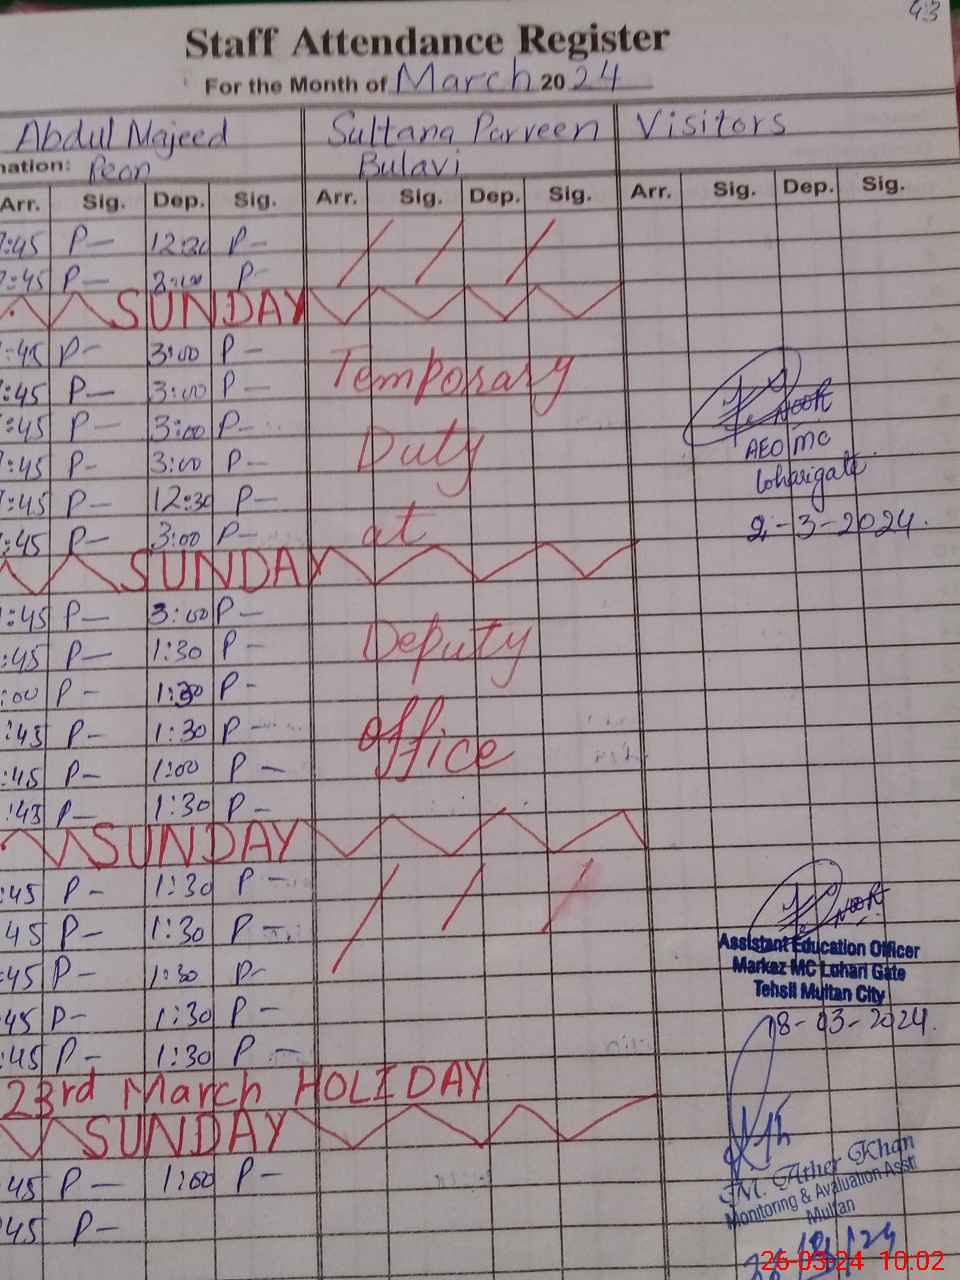 43
Staff Attendance Register
For the Month of March 2024
Abdul Majeed Sultana Parveen Visitors
nation: Peon Bulavi
Arr. Sig. Dep. Sig. Arr. Sig. Dep. Sig. Arr. Sig. Dep. Sig.
7:45 P- 12:30 P-
7:45 P- 3:00 P-
SUNDAY
:45 P- 3:00 P- Temporary
:45 P- 3:00 P-
:45 P- 3:00 P- Duty AEO/MC
7:45 P- 3:00 P- Loharigate
:45 P- 12:30 P-
:45 P- 3:00 P- at 2-3-2024.
SUNDAY
:45 P- 3:00 P-
:45 P- 1:30 P- Deputy
:00 P- 1:30 P-
:45 P- 1:30 P- office
:45 P- 1:00 P-
:45 P- 1:30 P-
SUNDAY
:45 P- 1:30 P-
45 P- 1:30 P- Assistant Education Officer
:45 P- 1:30 P- Markaz MC Lohari Gate
Tehsil Multan City
45 P- 1:30 P- 18-03-2024.
:45 P- 1:30 P-
23rd March HOLIDAY
SUNDAY
45 P- 1:00 P- M. Ather Khan
Monitoring & Evaluation Asstt
45 P- Multan
26-03-24 10.02